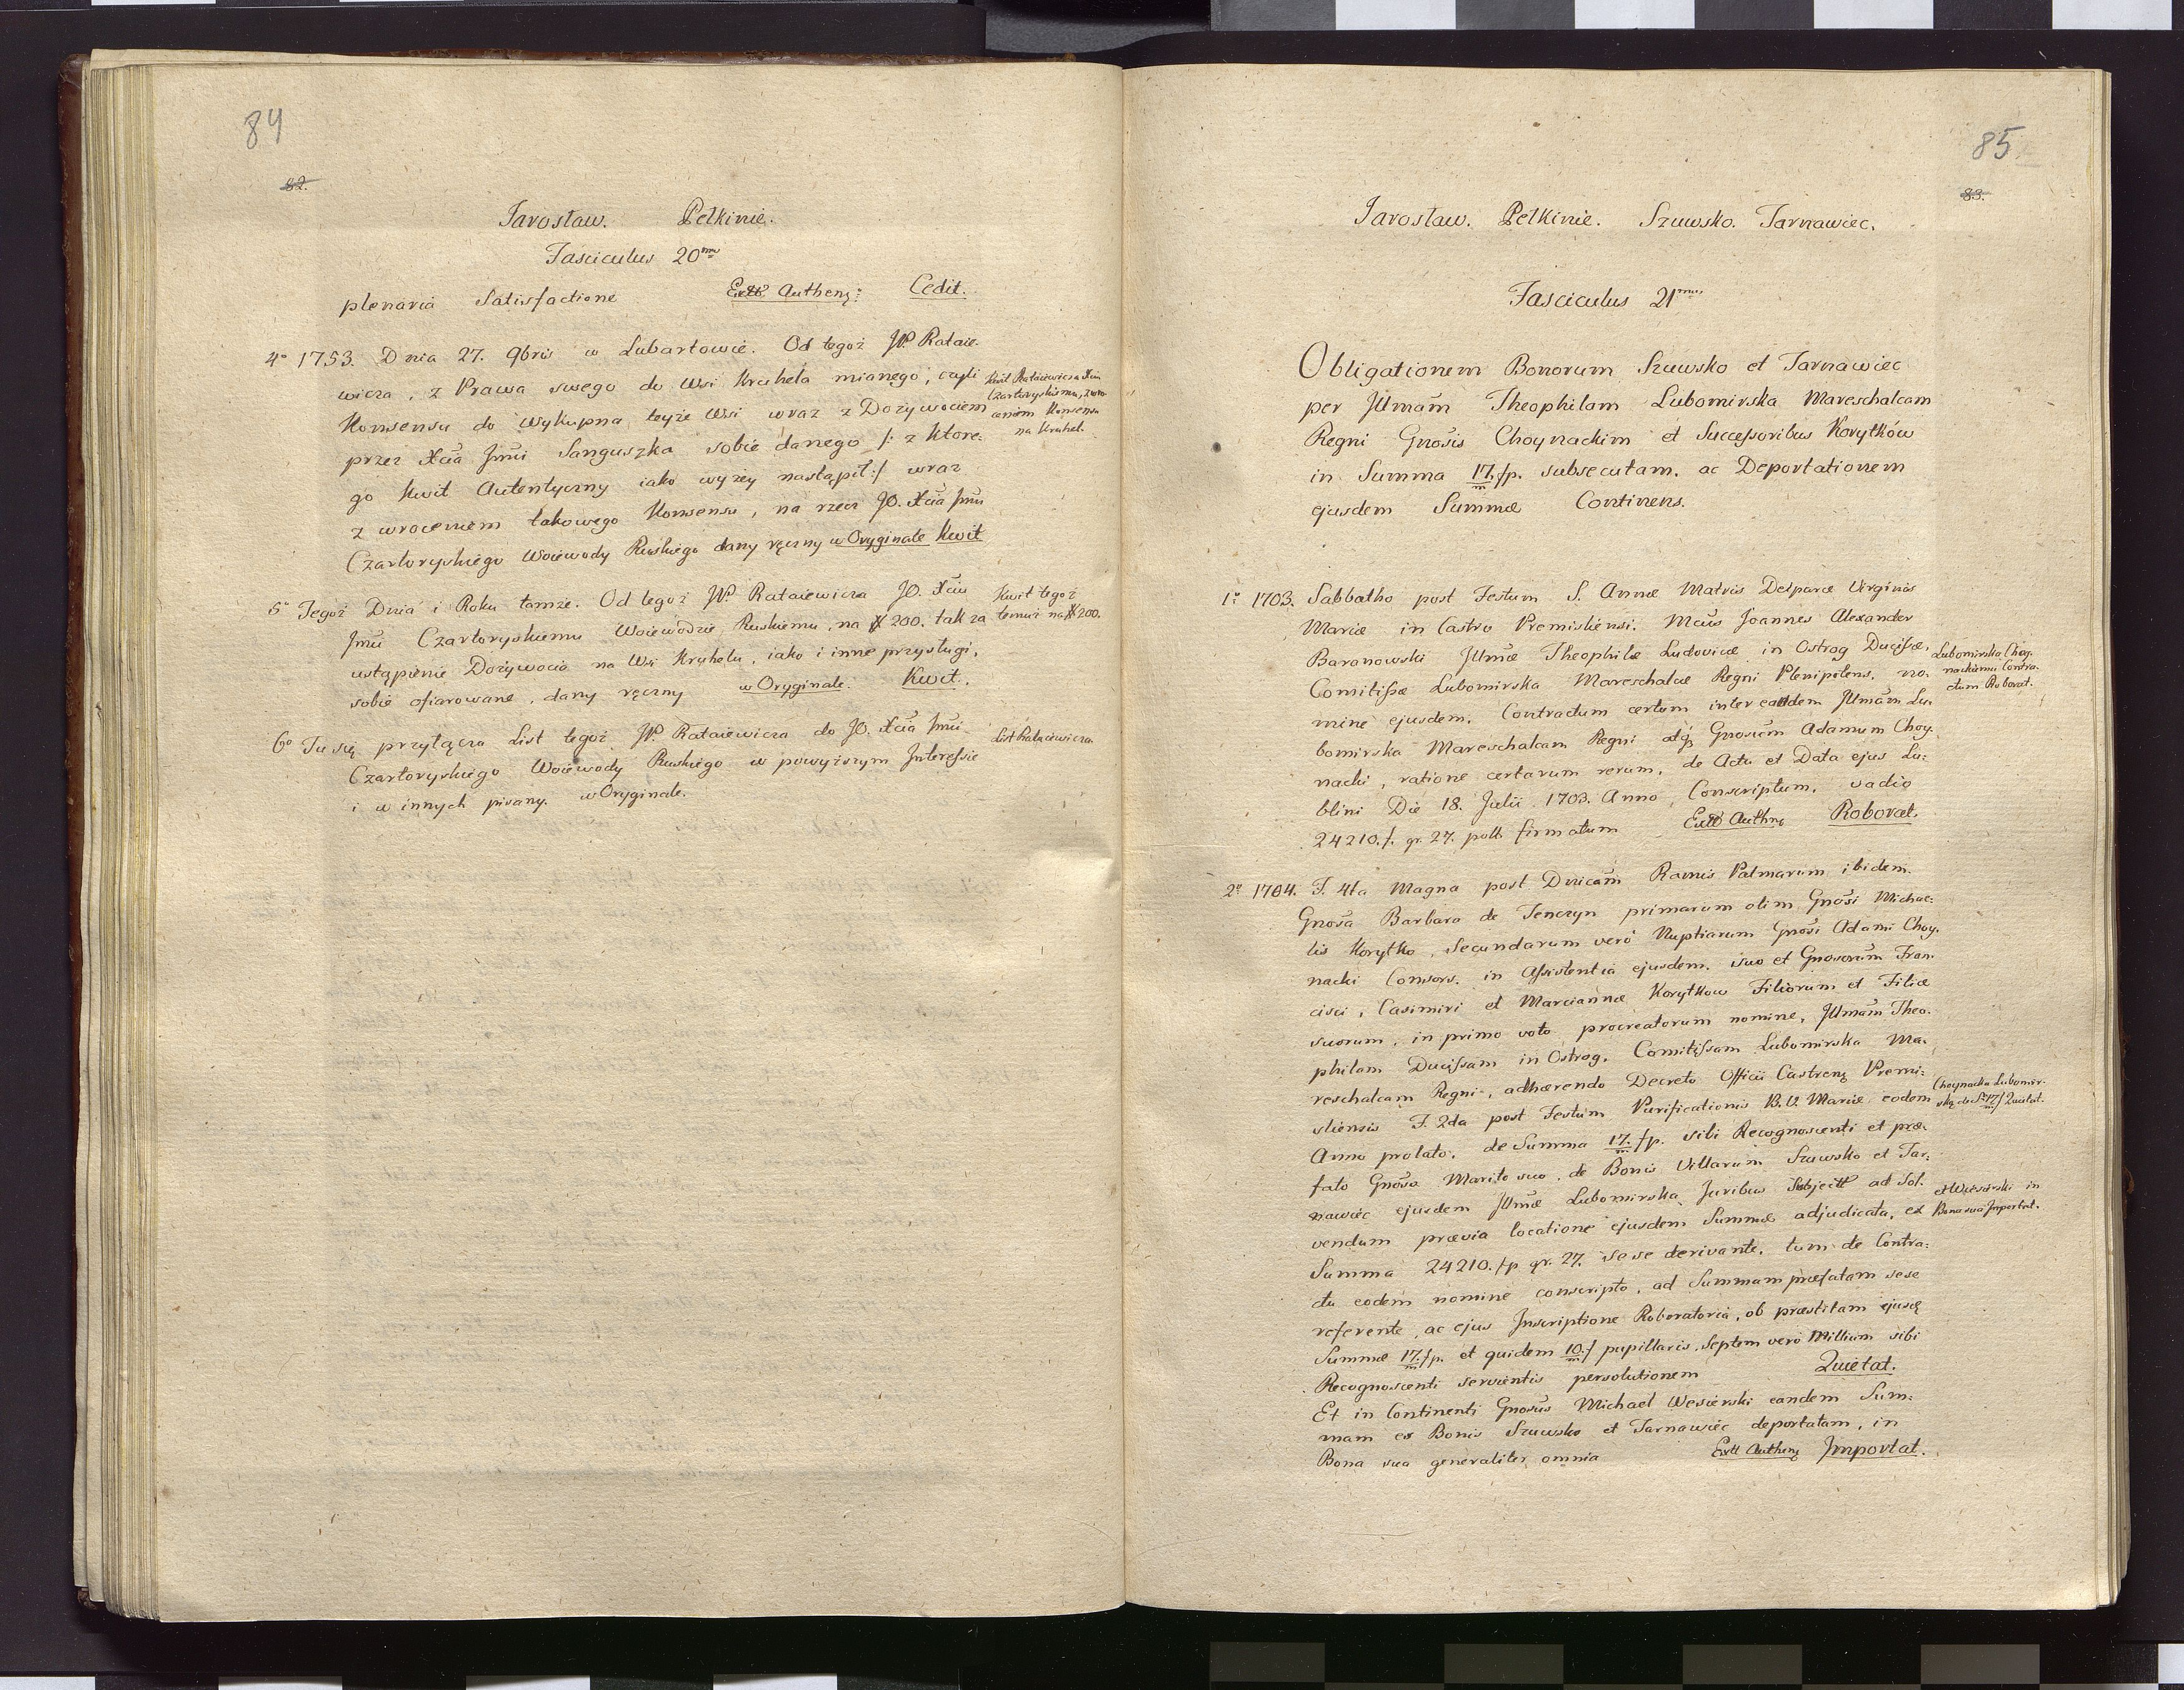 84
82.
Jarosław. Pełkinie.
Fasciculus 20mus
plenaria Satisfactione Extt Authenq: Cedit.
4o 1753. Dnia 27. 9bris w Lubartowie. Od tegoż JP. Rataie-
wicza, z Prawa swego do Wsi Kruhela mianego, czyli
Konsensu do Wykupna teyże Wsi wraz z Dożywociem
przez Xcia Jmci Sanguszka sobie danego /: z które:
go Kwit Autentyczny iako wyżey nastąpił :/ wraz
z wroceniem takowego Konsensu, na rzecz JO. Xcia Jmci
Czartoryskiego Woiewody Ruskiego dany ręczny w Oryginale Kwit
Kwit Rataiewicza Xciu
Czartoryskiemu, z wro-
ceniem Konsensu
na Kruhel.
5o Tegoż Dnia i Roku tamże. Od tegoż JP. Rataiewicza JO. Xciu
Jmci Czartoryskiemu Woiewodzie Ruskiemu, na # 200. tak za
ustąpienie Dożywocia na Wsi Kruhelu, iako i inne przysługi,
sobie ofiarowane, dany ręczny w Oryginale. Kwit.
Kwit tegoż
temuż na # 200.
6o Tu się przyłącza List tegoż JP. Rataiewicza do JO. Xcia Jmci
Czartoryskiego Woiewody Ruskiego w powyższym Interessie
i w innych pisany. w Oryginale.
List Rataiewicza
85
83.
Jarosław. Pełkinie. Szuwsko. Tarnawiec.
Fasciculus 21mus
Obligationem Bonorum Szuwsko et Tarnawiec
per Jllmam Theophilam Lubomirska Mareschalcam
Regni Gnosis Choynackim et Successoribus Korytków
in Summa 17/m fp. subsecutam. ac Deportationem
ejusdem Summæ Continens.
1o 1703. Sabbatho post Festum S. Annæ Matris Deiparæ Virginis
Mariæ in Castro Premisliensi. Mcus Joannes Alexander
Baranowski Jllmæ Theophilæ Ludovicæ in Ostrog Ducissæ,
Comitissæ Lubomirska Mareschalcæ Regni Plenipotens, no-
mine ejusdem. Contractum certum inter eandem Jllmam Lu-
bomirska Mareschalcam Regni atq Gnosum Adamum Choy-
nacki, ratione certarum rerum, de Actu et Data ejus Lu-
blini Die 18. Julii 1703. Anno, Conscriptum, vadio
24210. f. gr. 27. poll. firmatum Extt Authnq Roborat.
Lubomirska Choy-
nackiemu Contra-
ctum Roborat.
2o 1704. F. 4ta Magna post Dnicam Ramis Palmarum ibidem.
Gnosa Barbara de Tenczyn primarum olim Gnosi Michae-
lis Korytko, Secundarum vero Nuptiarum Gnosi Adami Choy-
nacki Consors. in Assistentia ejusdem. suo et Gnosorum Fran-
cisci, Casimiri et Mariannæ Korytkow Filiorum et Filiæ
suorum, in primo voto procreatorum nomine, Jllmam Theo-
philam Ducissam in Ostrog. Comitissam Lubomirska Ma-
reschalcam Regni, adhærendo Decreto Officii Castrenq Premi-
sliensis F. 2da post Festum Purificationis B. V. Mariæ eodem
Anno prolato, de Summa 17/m fp. sibi Recognoscenti et præ-
fato Gnoso Marito suo, de Bonis Villarum Szuwsko et Tar-
nawiec ejusdem Jllmæ Lubomirska Juribus Subjectt ad Sol-
vendum prævia locatione ejusdem Summæ adjudicata, ex
Summa 24210. fp. gr. 27. sese derivante, tum de Contra-
ctu eodem nomine conscripto, ad Summam præfatam sese
referente, ac ejus Inscriptione Roboratoria, ob præstitam ejusq
Summæ 17/m fp. et quidem 10/m f pupillaris, Septem vero Millium sibi
Recognoscenti servientis persolutionem Quietat.
Choynacka Lubomir-
ską de Sa 17/m f Quietat.
Et in Continenti Gnosus Michael Wesierski eandem Sum-
mam ex Bonis Szuwsko et Tarnawiec deportatam, in
Bona sua generaliter omnia Extt Authenq Importat.
et Wiesierski in
Bona sua Importat.